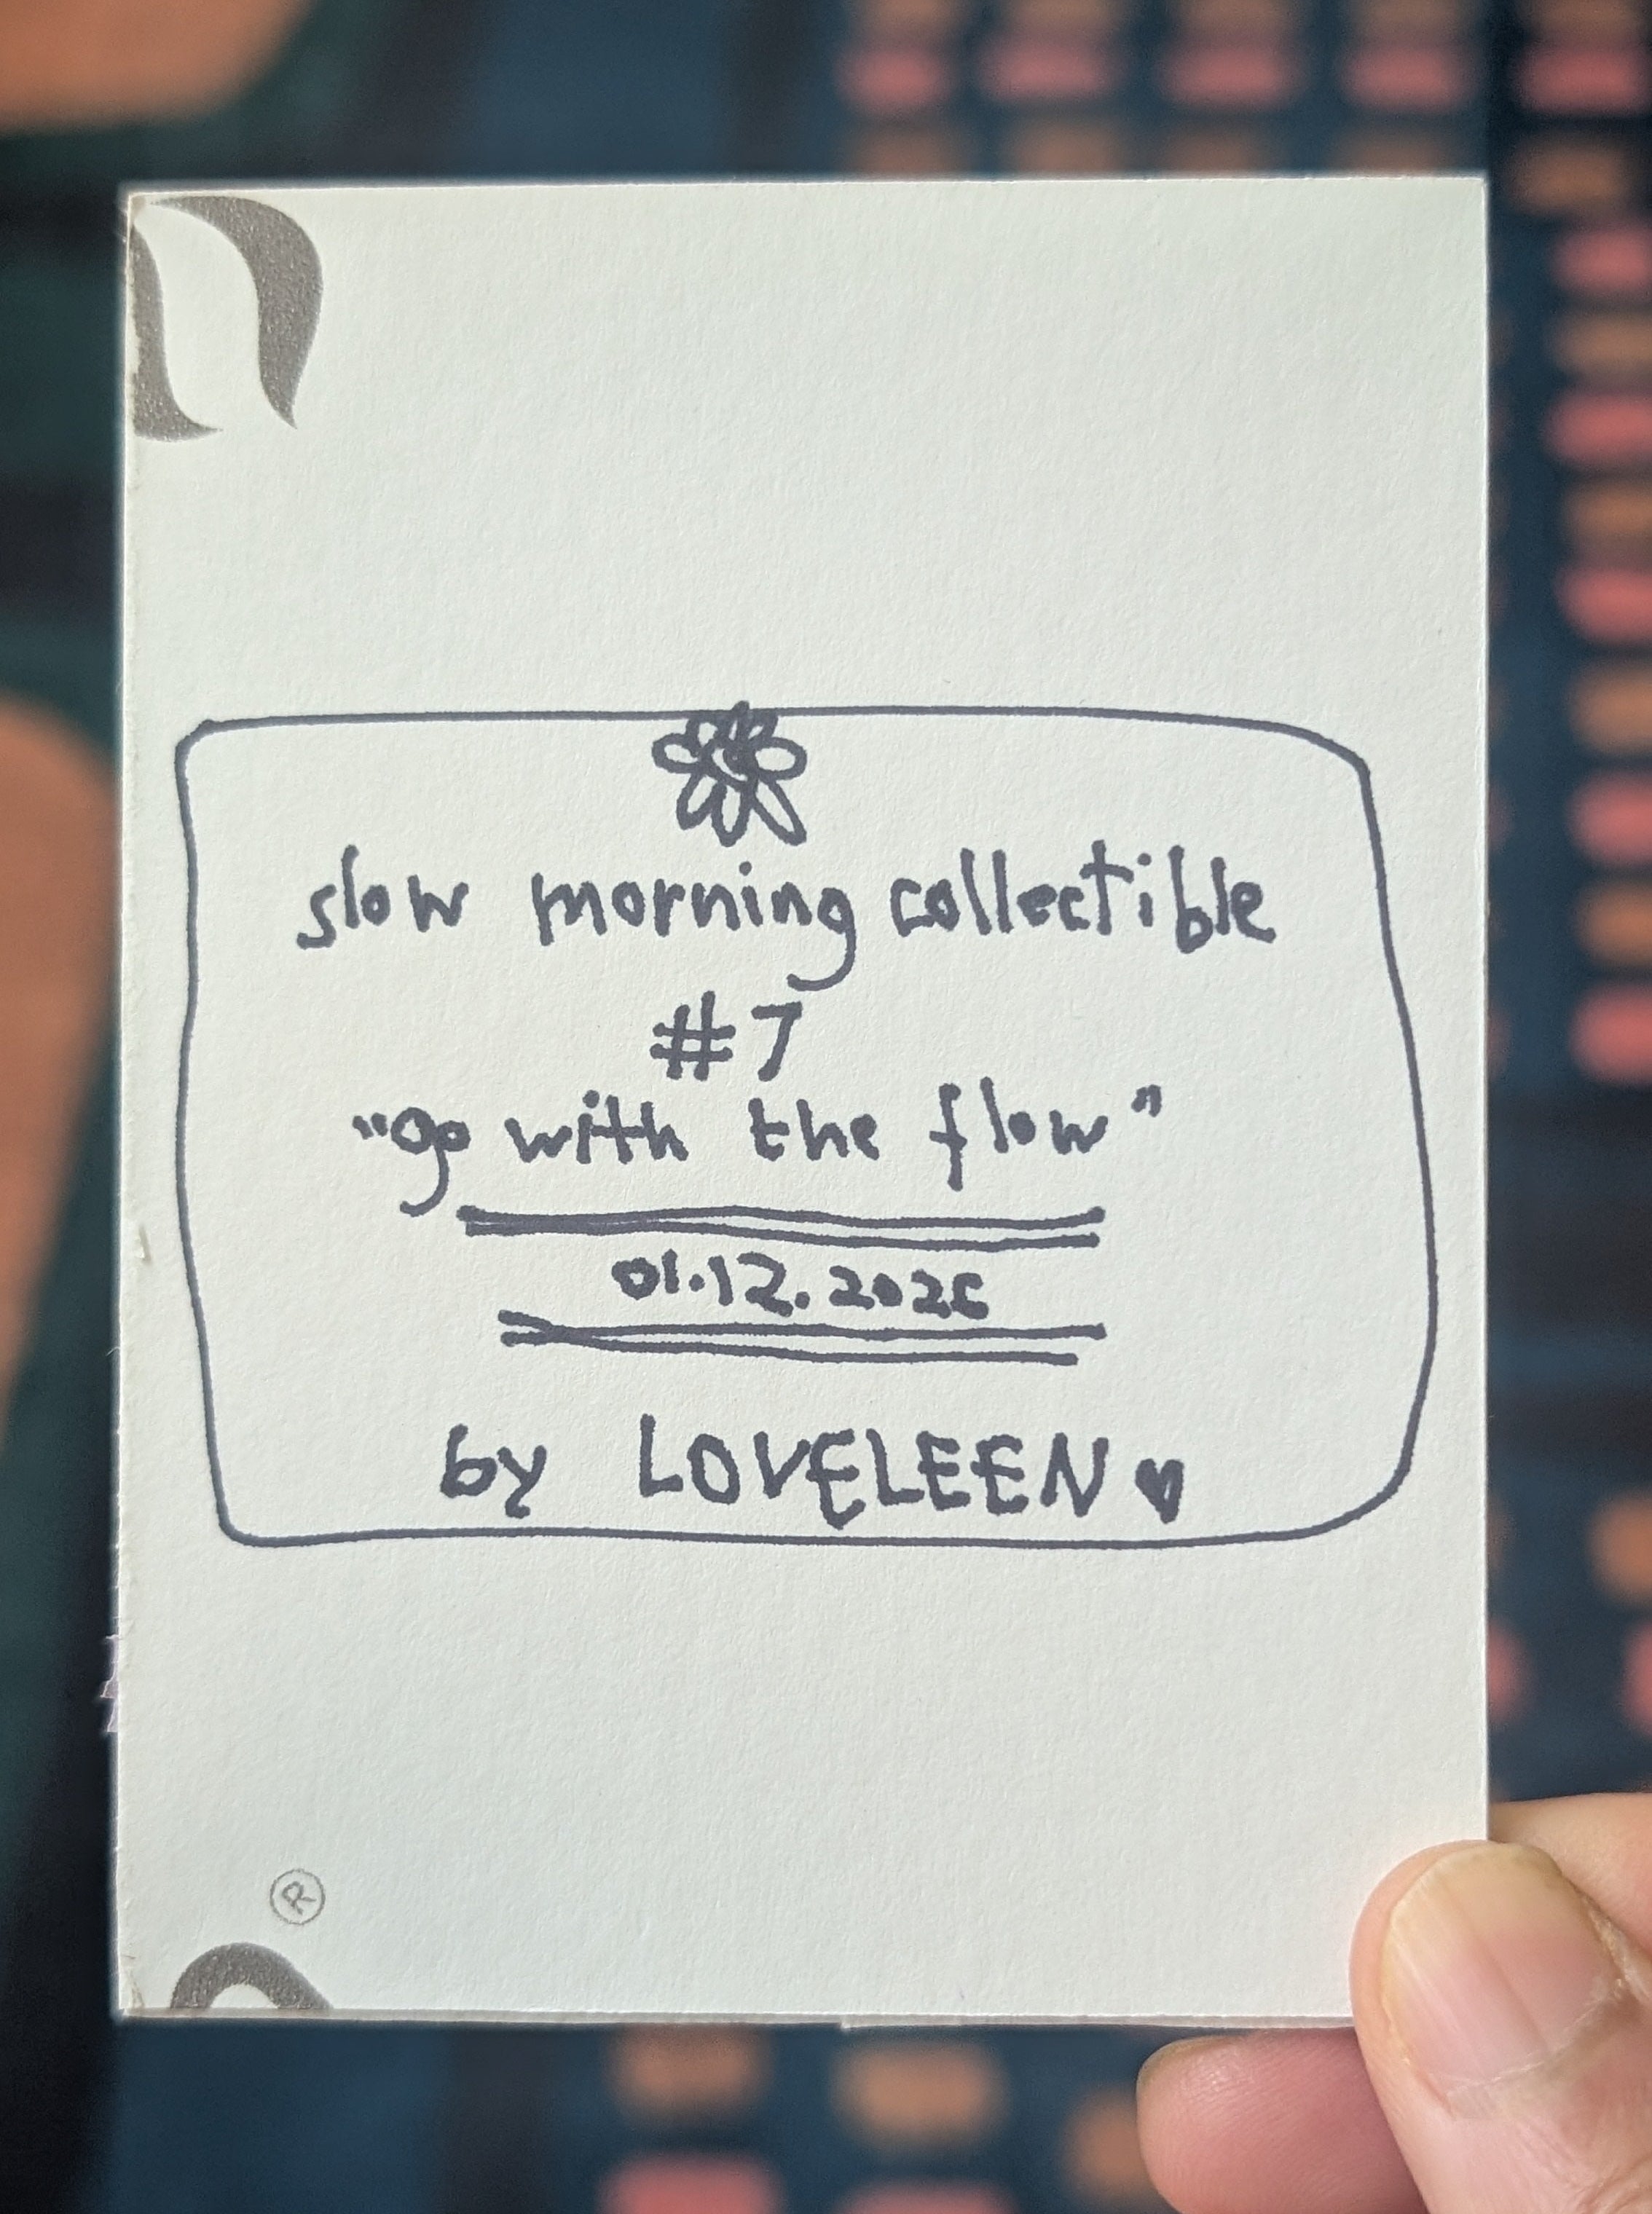 slow morning collectible
#7
"go with the flow"
01.12.2026
by LOVELEEN ♥
®